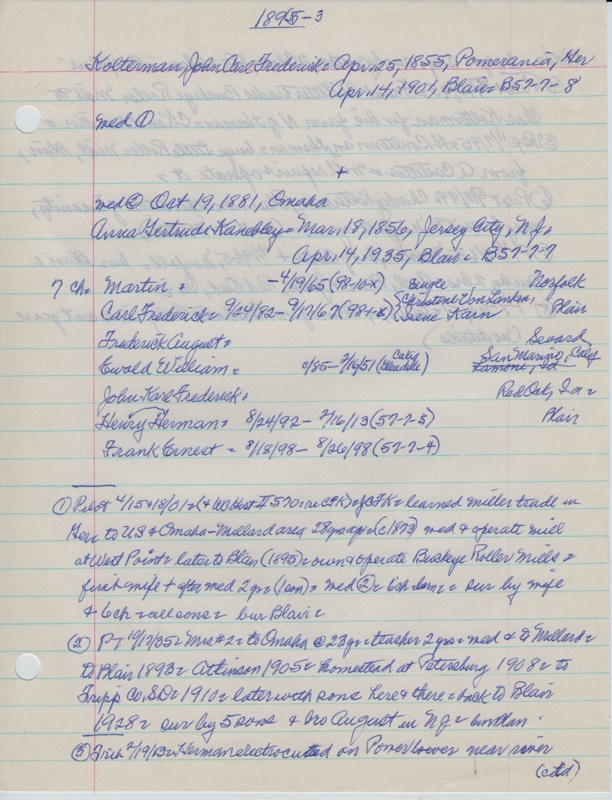 1895-3
Kolterman, John Carl Frederick = Apr. 25, 1855, Pomerania, Ger
Apr. 14, 1901, Blair = B57-7-8
med ①
+
med ② Oct 19, 1881, Omaha
Anna Gertrude Kanebley = Mar. 18, 1856, Jersey City, N.J. =
Apr. 14, 1935, Blair = B57-7-7
7 ch = Martin = -4/19/65 (98-10-x) Norfolk
Carl Frederick = 9/24/82- 9/17/67 (98-1-x) { Christene Von Lanken, Irene Kain Blair
Frederick August = Seward
Ewald William = c/85- 2/16/51 (Calif Glendale) San Marino, Calif
John Karl Frederick = Red Oak, Ia =
Henry Herman = 8/24/92 - 2/16/13 (57-7-5) Blair
Frank Ernest = 8/18/98- 8/26/98 (57-7-4)
① Pilot 4/15 & 18/01 = (& WC Hist II 570 = re CFK) = JCFK = learned miller trade in
Ger to US & Omaha-Millard area 28 yrs ago = (c1873) med & operate mill
at West Point = later to Blair (1895) = own & operate Buckeye Roller Mills =
first wife + after med 2 yr = (1 son) = med ② = 6 ch born = sur by wife
& 6 ch = all sons = bur Blair =
② PT 10/17/35 = Mrs #2 = to Omaha @ 23 yr = teacher 2 yrs = med & to Millard =
to Blair 1893 = Atkinson 1905 = homestead at Petersburg 1908 = to
Tripp Co, SD = 1910 = later with sons here & there = back to Blair
1928 = sur by 5 sons & bro August in N.J. =
③ Trib 2/19/13 = Herman electrocuted on Power tower near river
(ctd)